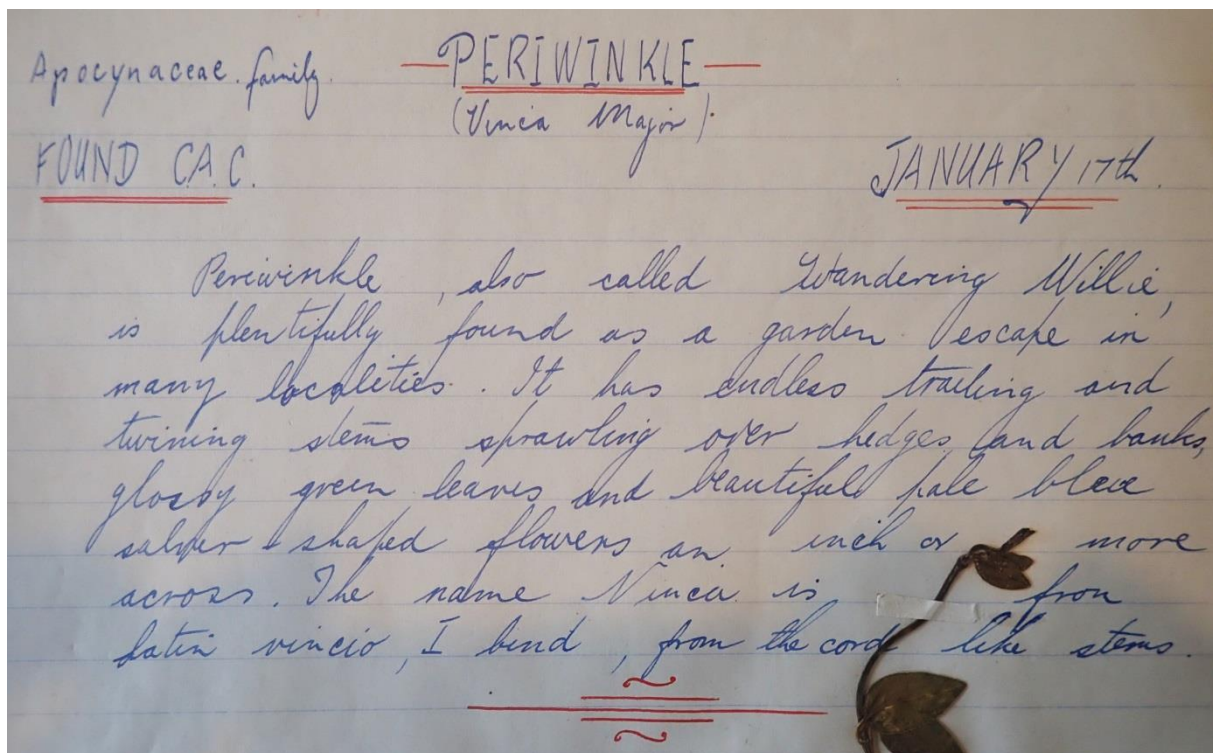 Apocynaceae family.
PERIWINKLE
(Vinca Major).
FOUND C.A.C.
JANUARY 17th.
Periwinkle, also called Wandering Willie,
is plentifully found as a garden escape in
many localities. It has endless trailing and
twining stems sprawling over hedges and banks,
glossy green leaves and beautiful pale blue
salver-shaped flowers an inch or more
across. The name Vinca is from
Latin vincio, I bind, from the cord like stems.